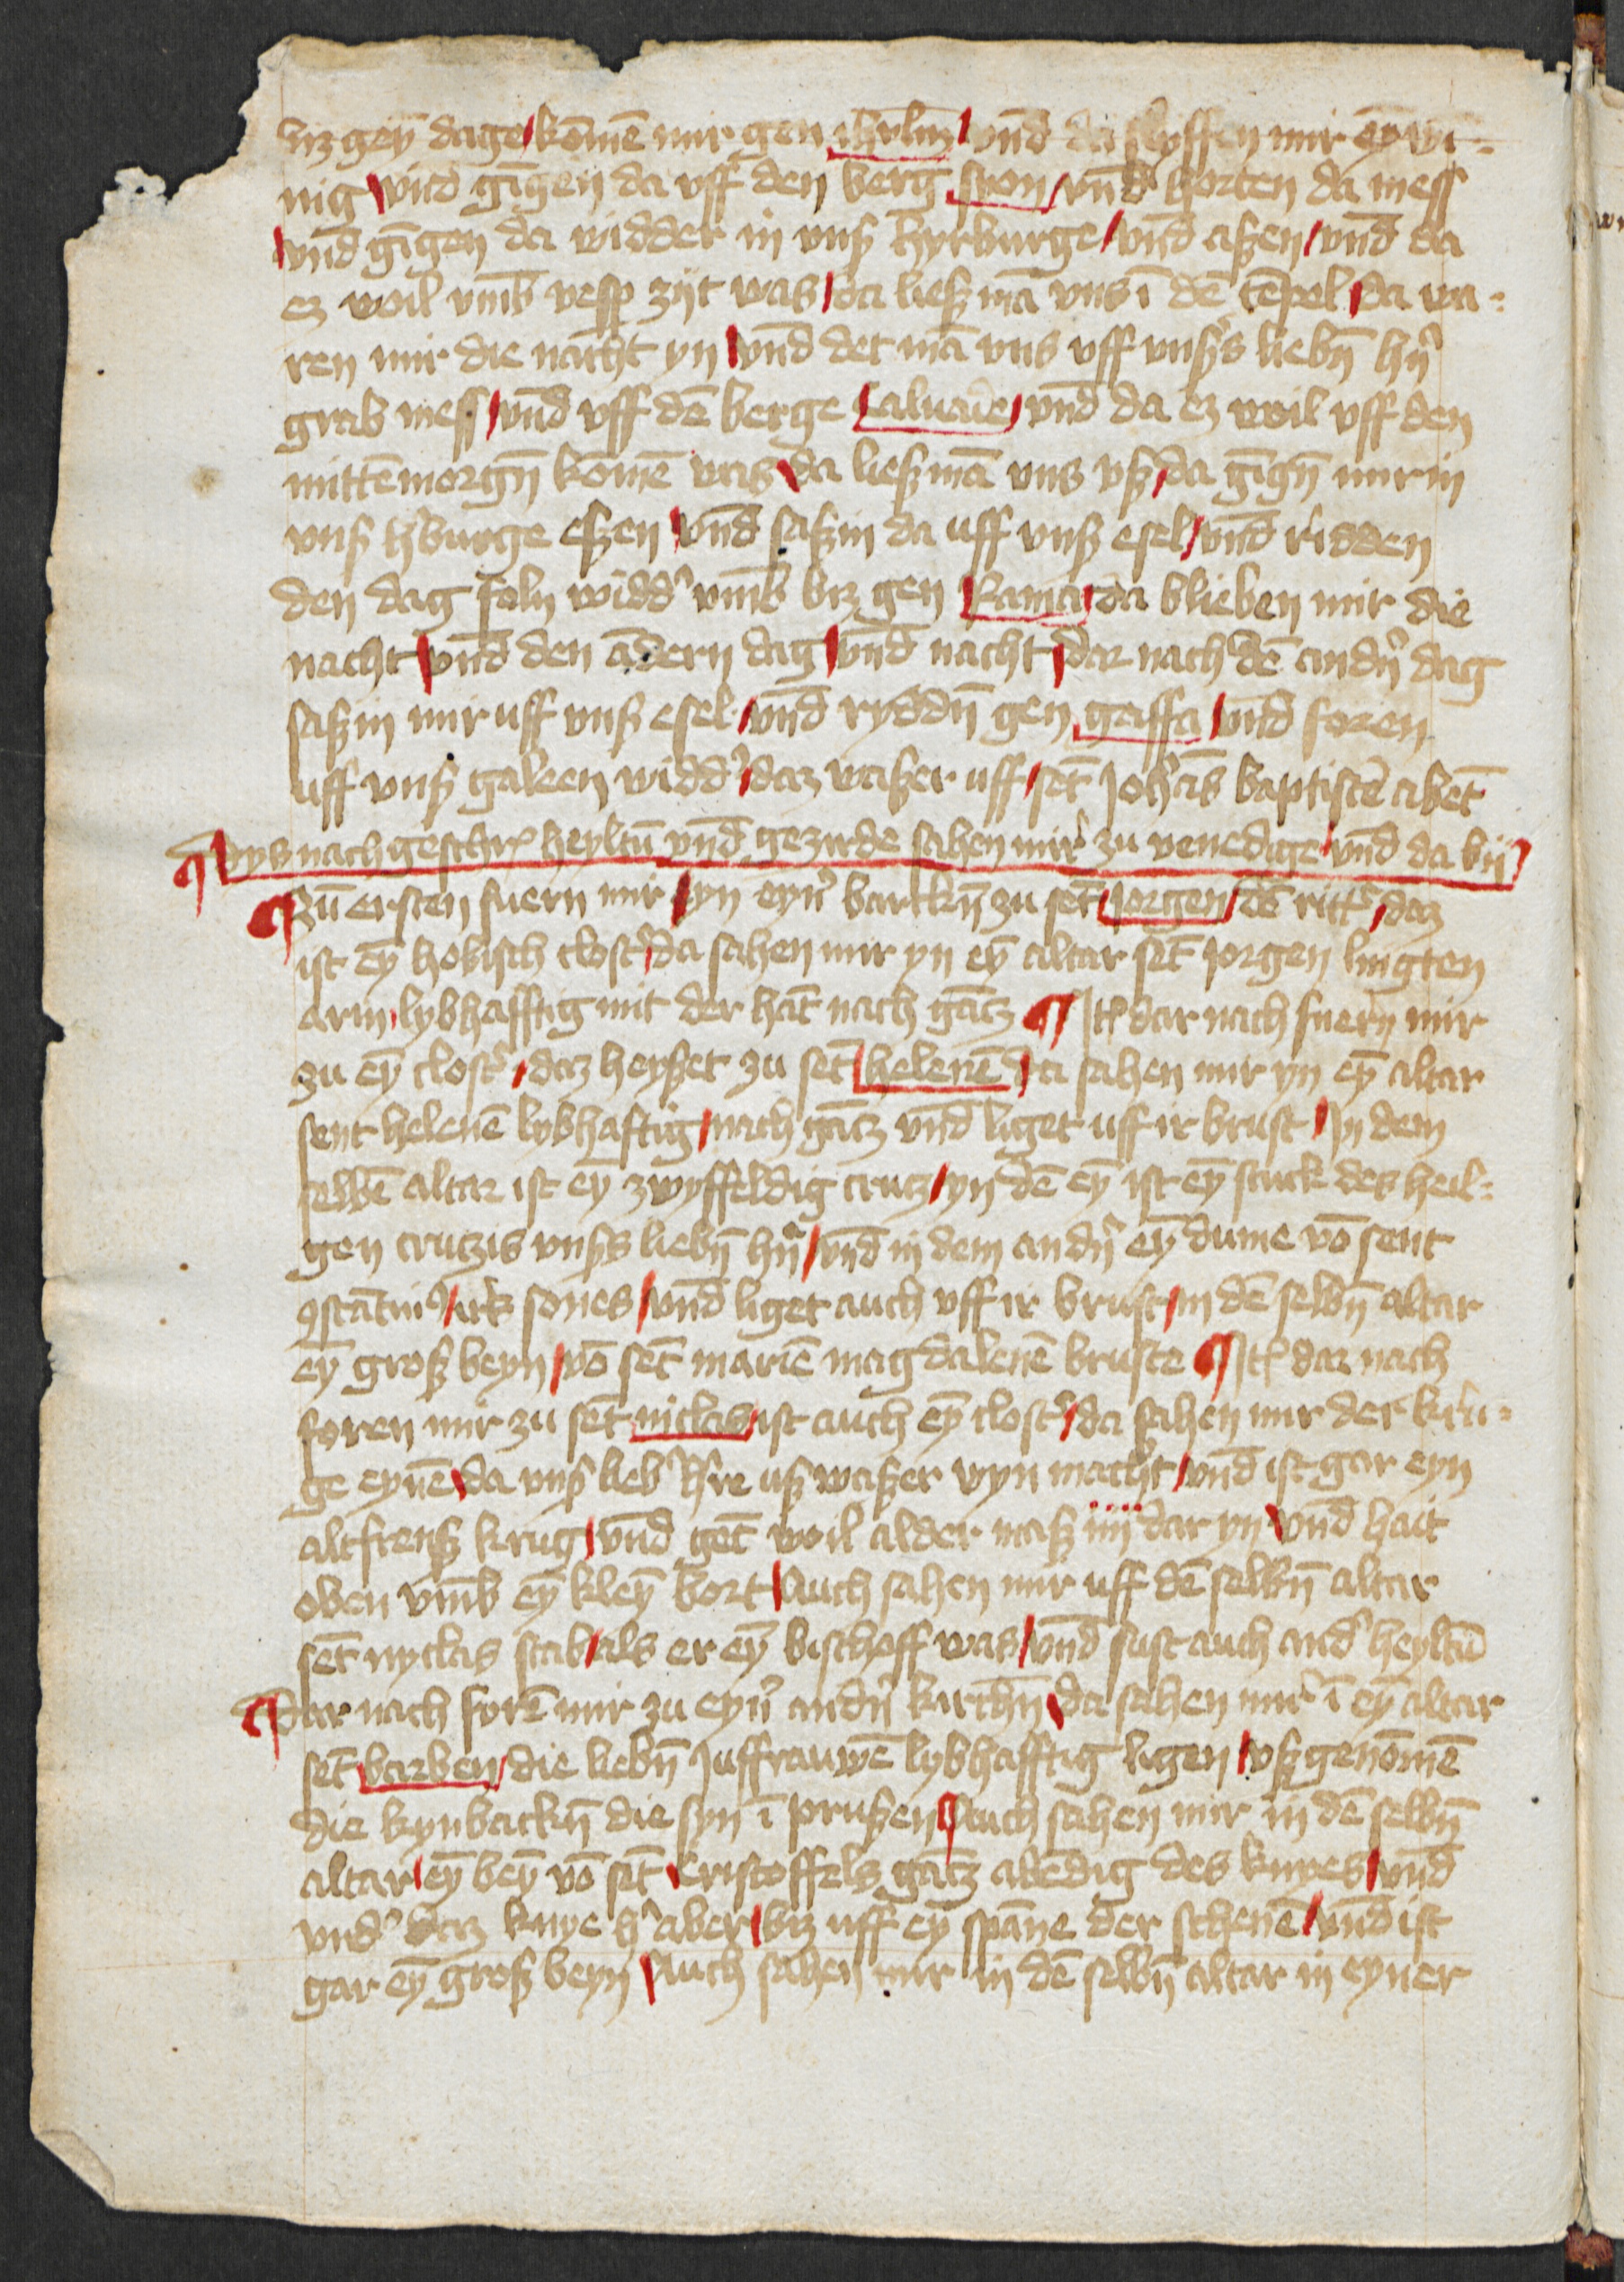 biz gey̅ dage / kome̅ mir gen ihrl̅m / vnd da slyffen mir ey̅ we-
nig / vnd gi̅gen da vff den berg syon / vnd horten da mess
/ vnd gi̅gen da widder in vnß hyrburge / vnd aßen / vnd da
ez woil vm̅b vesp zijt was / da ließ ma̅ vns i̅ de̅ te̅pel / da wa-
ren mir die nacht yn / vnd det ma̅ vns vff vnßs liebn̅ hn̅
grab mess / vnd vff de̅ berge caluarie / vnd da ez woil vff den
mitte̅morgn̅ kome̅ was / da ließ ma̅ vns vß / da gi̅gn̅ mir in
vnß h'burge eßen / vnd saßin da uff vnß esel / vnd ridden
den dag foln widd' vm̅b biz gen Rama / da blieben mir die
nacht / vnd den a̅dern dag / vnd nacht / dar nach de̅ andn̅ dag
saßin mir uff vnß esel / vnd ryddn̅ gen gaffa / vnd foren
uff vnß galeen widd' / daz waßer uff / set̅ Joha̅s baptiste̅ abet̅
¶ Dys nach geschr' heyltu̅ vnd gezirde sahen mir zu venedige / vnd da by̅
¶ Zu̅ ersten fuern mir / yn eyn' barckn̅ zu set̅ Jorgen de̅ ritt' / daz
ist ey̅ hobisch clost' / da sahen mir yn ey̅ altar set̅ Jorgen lingten
arm / lybhafftig mit der hat̅ nach ga̅tz ¶ Jt' dar nach fuern mir
zu ey̅ clost' / daz heyßet zu set̅ helene̅ / da sahen mir yn ey̅ altar
sent helene̅ lybhaftig / nach ga̅tz vnd liget uff ir brust / Jn dem
selbe̅ altar ist ey̅ zwyffeldig crutz / yn de̅ ey̅ ist ey̅ stuck des heil-
gen crutzis vnßs liebn̅ hn̅ / vnd in dem andn̅ ey̅ dume vo̅ sent
ꝯsta̅tin' / irs sones / vnd liget auch vff ir brust / in de̅ selbn̅ altar
ey̅ groß beyn / vo̅ set̅ marie̅ magdalene̅ bruste ¶ Jt' dar nach
foren mir zu set̅ niclas / ist auch ey̅ clost' / da sahen mir der kru-
ge eyne̅ / da vnß lieb h're uß waßer wyn macht / vnd ist gar eyn
altfrenß krug / vnd get̅ woil alder maß iiij dar yn / vnd hait
oben vm̅b ey̅ kley̅ bort / Auch sahen mir uff de̅ selbn̅ altar
set̅ nyclas stab / als er ey̅ bischoff was / vnd sust auch and' heyltu̅
¶ Dar nach fore̅ mir zu eyn' andn̅ kirchn̅ / da sahen mir i̅ ey̅ altar
set̅ barben / die liebn̅ Juffrauwe̅ lybhafftig ligen / vßgenome̅
die kynbackn̅ die syn i̅ prußen / Auch sahen mir in de̅ selbn̅
altar / ey̅ bey̅ vo̅ set̅ Cristoffels ga̅tz abe̅dig des knyes / vnd
vnd' daz knye h' aber / biz uff ey̅ spa̅ne der schene̅ / vnd ist
gar ey̅ groß beyn / Auch sahen mir in de̅ selbn̅ altar in eyner